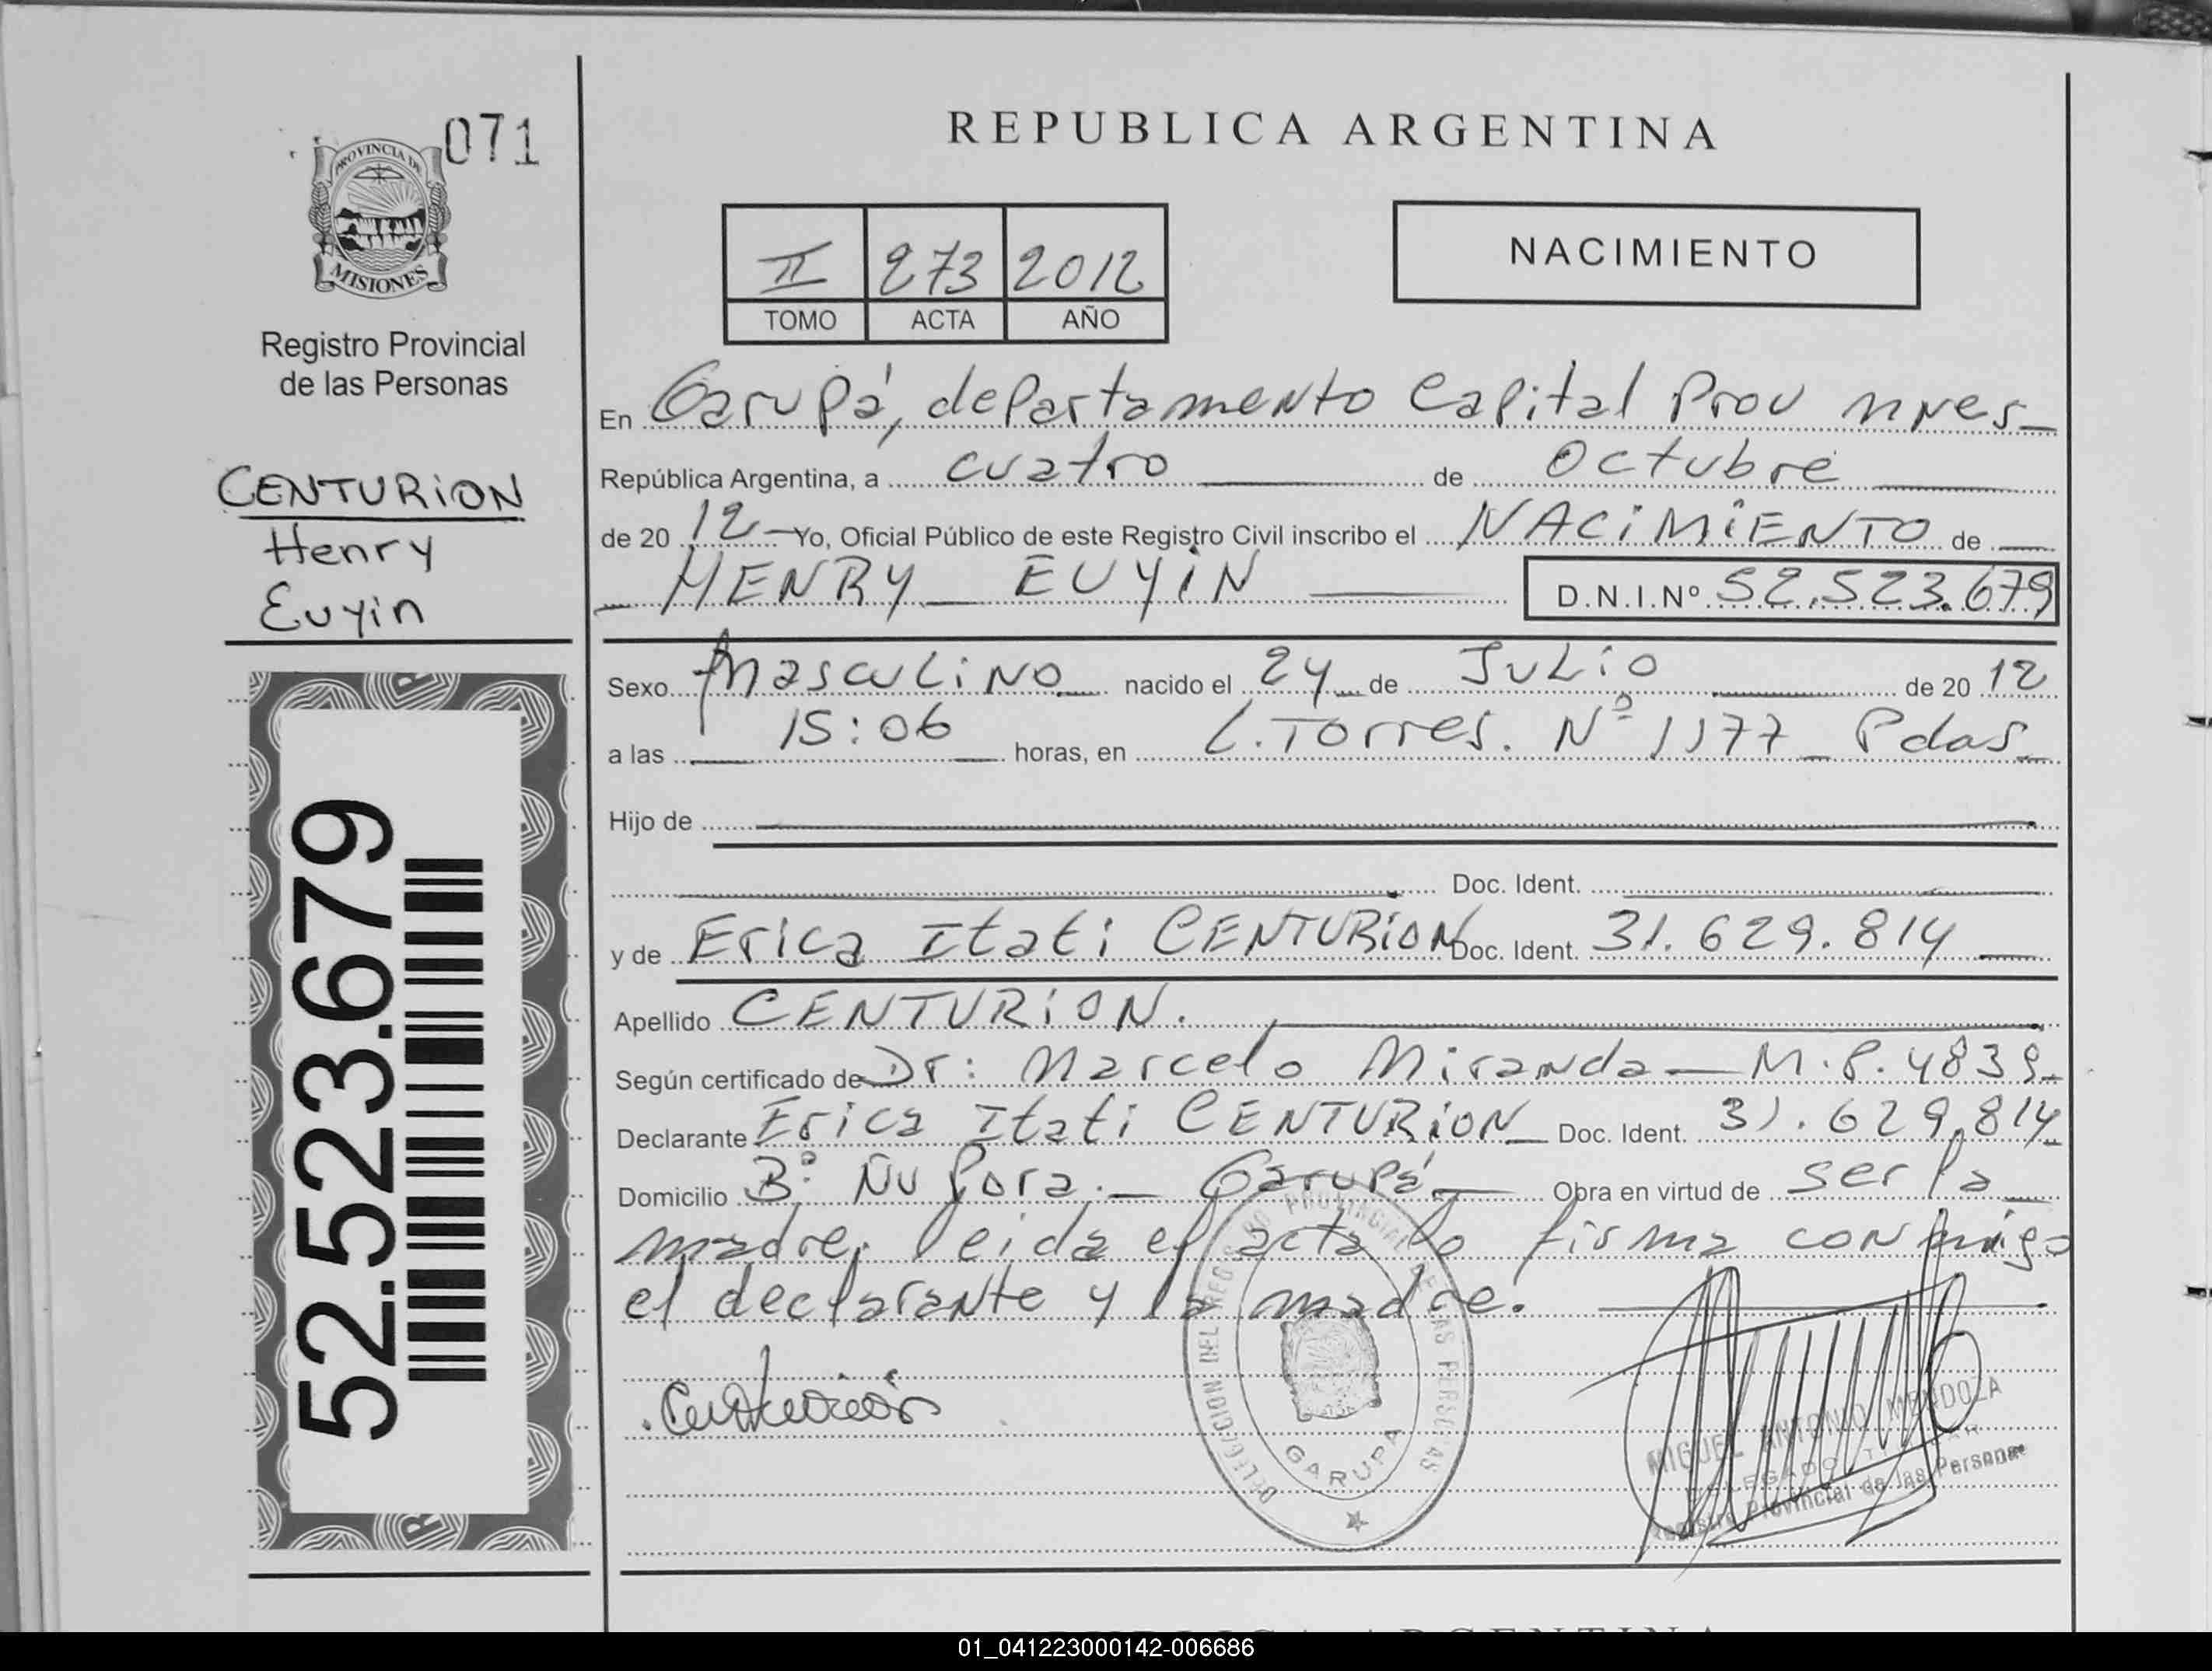 071
PROVINCIA DE
MISIONES
Registro Provincial
de las Personas
CENTURION
Henry
Euyin
52.523.679
REPUBLICA ARGENTINA
II 273 2012
TOMO ACTA AÑO
NACIMIENTO
En Garupá, departamento Capital Prov mnes
República Argentina, a cuatro de Octubre
de 20 12 Yo, Oficial Público de este Registro Civil inscribo el NACIMIENTO de
HENRY EUYIN D.N.I.Nº 52.523.679
Sexo Masculino nacido el 24 de Julio de 20 12
a las 15:06 horas, en L. Torres. Nº 1177 Pdas
Hijo de
Doc. Ident.
y de Erica Itati CENTURION Doc. Ident. 31.629.814
Apellido CENTURION.
Según certificado de Dr: Marcelo Miranda - M.P. 4839
Declarante Erica Itati CENTURION Doc. Ident. 31.629.814
Domicilio Bº Ñu Pora. - Garupá Obra en virtud de ser la
madre, leida el acta lo firma conmigo
el declarante y la madre.
DELEGACION DEL REGISTRO PROVINCIAL DE LAS PERSONAS
GARUPA
MIGUEL ANTONIO MENDOZA
DELEGADO TITULAR
Registro Provincial de las Personas
01_041223000142-006686